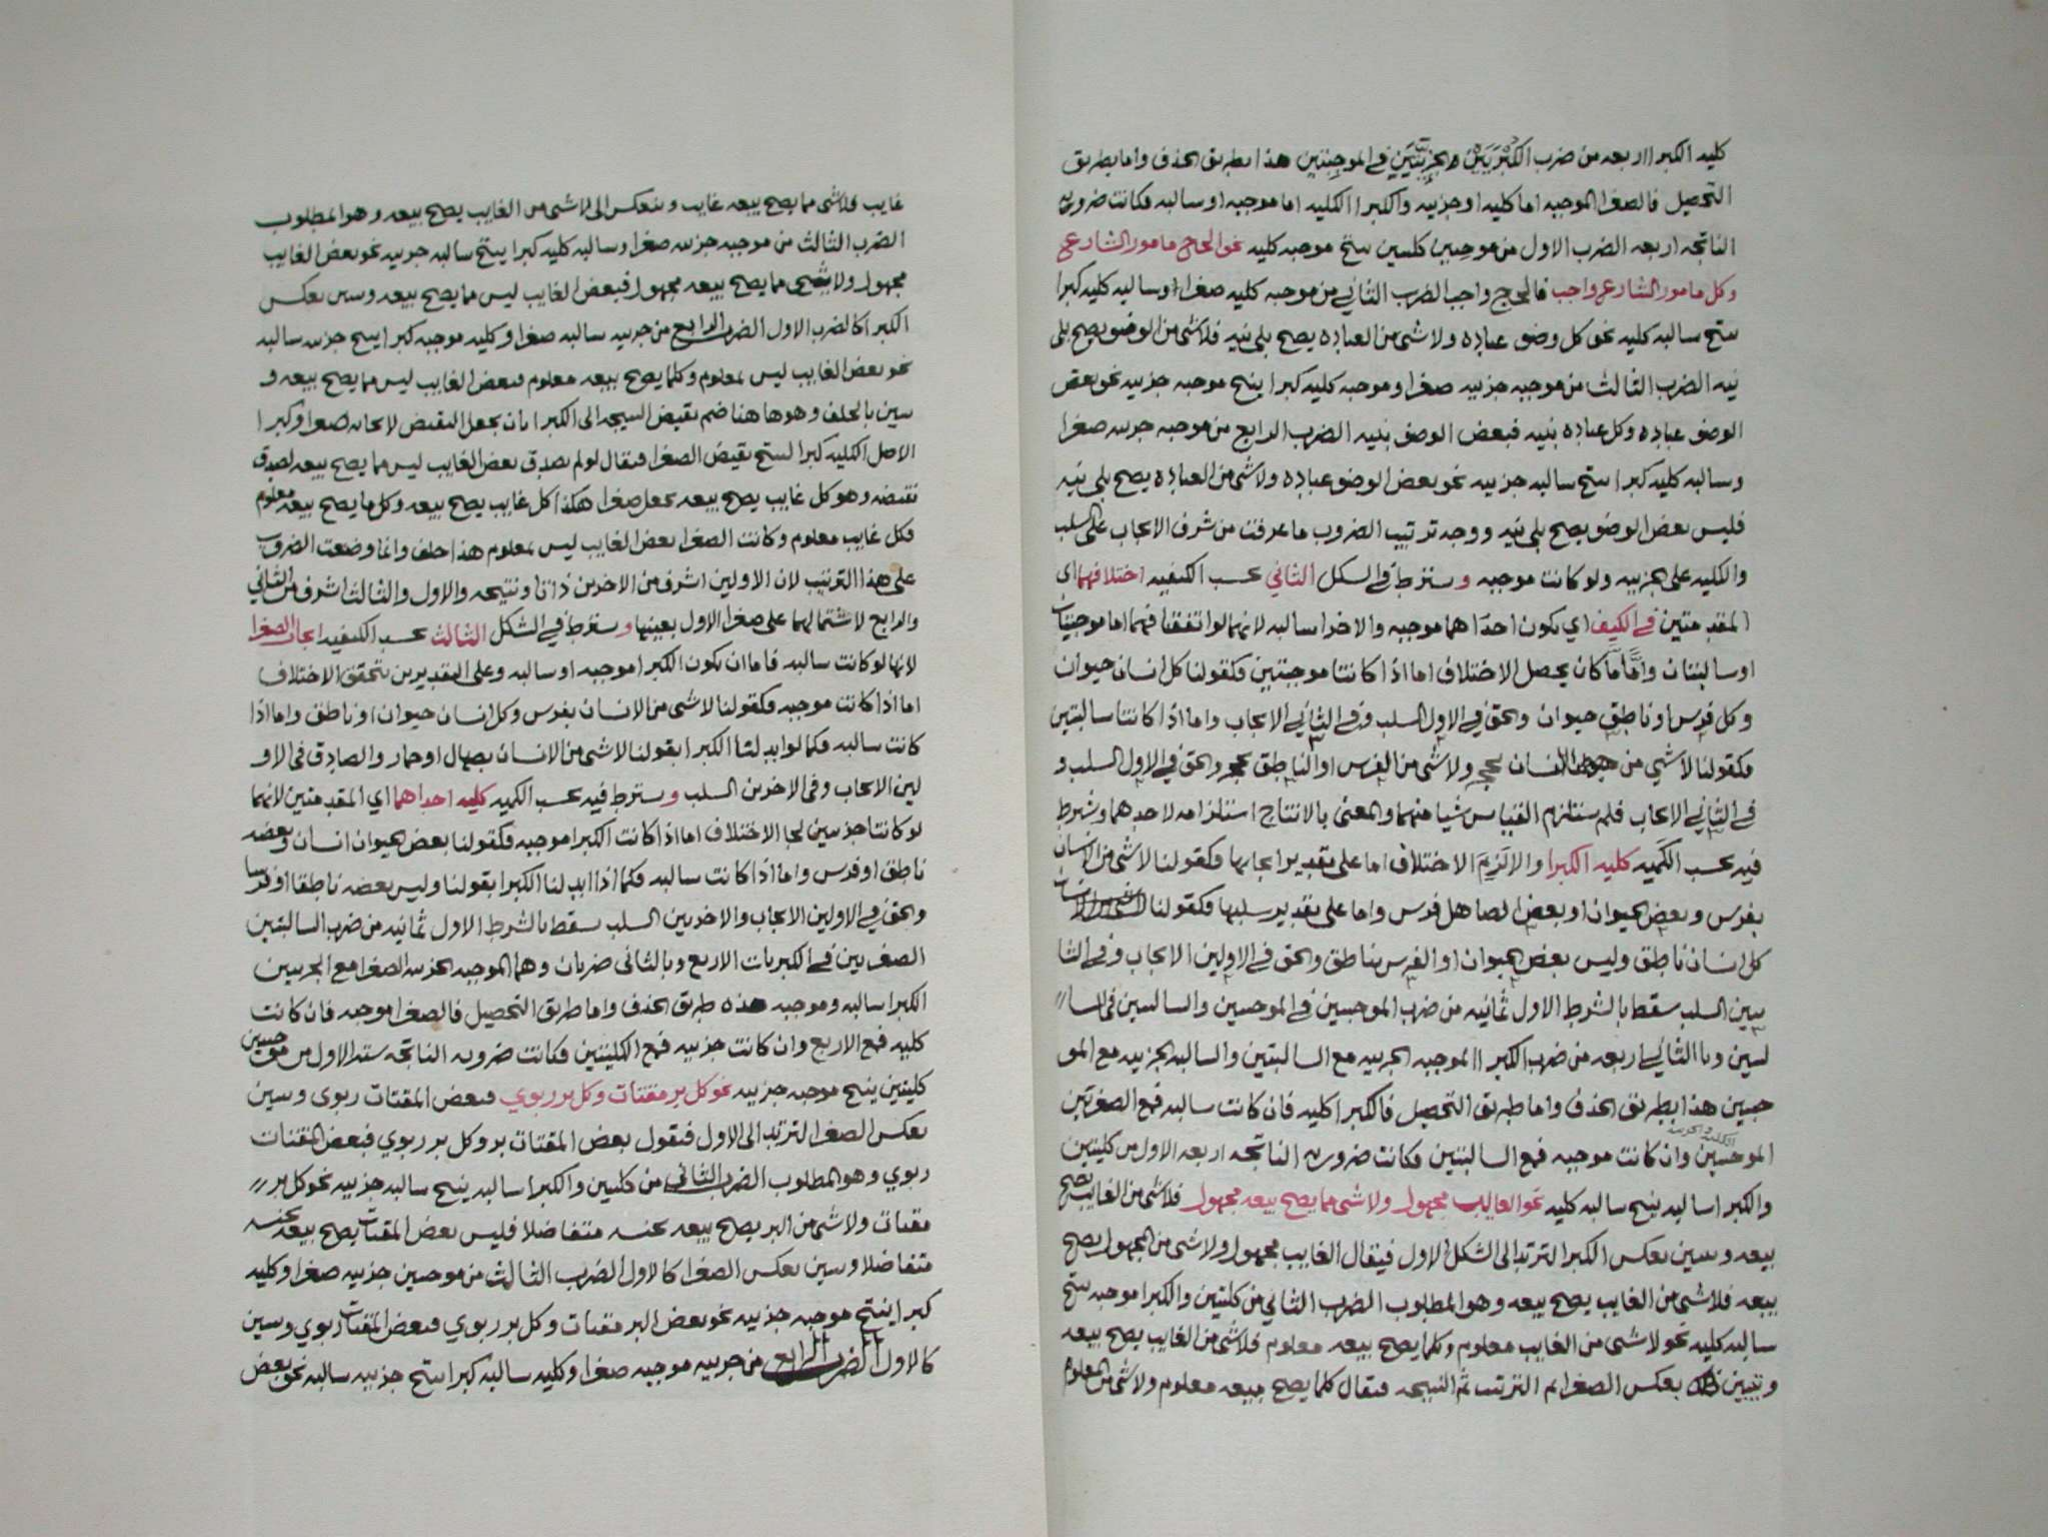 كليه الكبرا اربعه من ضرب الكبريين والجزييتين في الموجبتين هذا بطريق الحذف واما بطريق
التحصيل فالصغرا الموجبه اما كليه او جزييه والكبرا الكليه اما موجبه او سالبه فكانت ضروبه
الناتجه اربعه الضرب الاول من موجبين كليتين ينتج موجبه كليه نحو الحاج مامور الشارع
وكل مامور الشارع واجب فالحج واجب الضرب الثاني من موجبه كليه صغرا وسالبه كليه كبرا
ينتج سالبه كليه نحو كل وضو عباده ولا شي من العباده يصح بلي نيه فلا شي من الوضو يصح بلي
نيه الضرب الثالث من موجبه جزييه صغرا وموجبه كليه كبرا ينتج موجبه جزييه نحو بعض
الوضو عباده وكل عباده بنيه فبعض الوضو بنيه الضرب الرابع من موجبه جزييه صغرا
وسالبه كليه كبرا ينتج سالبه جزييه نحو بعض الوضو عباده ولا شي من العباده يصح بلي نيه
فليس بعض الوضو يصح بلي نيه ووجه ترتيب الضروب ما عرفت من شرف الايجاب على السلب
والكليه على الجزييه ولو كانت موجبه ويشترط في الشكل الثاني بحسب الكيفيه اختلافهما اي
المقدمتين في الكيف اي يكون احداهما موجبه والاخرا سالبه لانهما لو اتفقتا فهما اما موجبتان
او سالبتان واما ما كان يحصل الاختلاف اما اذا كانتا موجبتين فكقولنا كل انسان حيوان
وكل فرس او ناطق حيوان والحق في الاول السلب وفي الثاني الايجاب واما اذا كانتا سالبتين
فكقولنا لا شي من الانسان بحجر ولا شي من الفرس او الناطق بحجر والحق في الاول السلب و
في الثاني الايجاب فلم يستلزم القياس شيا منهما والمعنى بالانتاج استلزامه لاحدهما ويشترط
فيه بحسب الكميه كليه الكبرا والا لزم الاختلاف اما على تقدير ايجابها فكقولنا لا شي من الانسان
بفرس وبعض الحيوان او بعض الصاهل فرس واما على تقدير سلبها فكقولنا
كل انسان ناطق وليس بعض الحيوان او الفرس بناطق والحق في الاولين الايجاب وفي الثا
نيين السلب سقط بالشرط الاول ثمانيه من ضرب الموجبتين في الموجبتين والسالبتين في السا
لبتين وبالثاني اربعه من ضرب الكبرا الموجبه الجزييه مع السالبتين والسالبه الجزييه مع المو
جبتين هذا بطريق الحذف واما طريق التحصيل فالكبرا كليه فان كانت سالبه فمع الصغرتين
الموجبتين الكليه والجزييه وان كانت موجبه فمع السالبتين فكانت ضروبه الناتجه اربعه الاول من كليتين
والكبرا سالبه ينتج سالبه كليه نحو الغايب مجهول ولا شي مما يصح بيعه مجهول فلا شي من الغايب يصح
بيعه ويبين بعكس الكبرا لترتد الى الشكل الاول فيقال الغايب مجهول ولا شي من المجهول يصح
بيعه فلا شي من الغايب يصح بيعه وهو المطلوب الضرب الثاني من كليتين والكبرا موجبه ينتج
سالبه كليه نحو لا شي من الغايب معلوم وكلما يصح بيعه معلوم فلا شي من الغايب يصح بيعه
وتبيين ذلك بعكس الصغرا ثم الترتيب ثم النتيجه فيقال كلما يصح بيعه معلوم ولا شي من المعلوم
غايب فلا شي مما يصح بيعه غايب وينعكس الى لا شي من الغايب يصح بيعه وهو المطلوب
الضرب الثالث من موجبه جزييه صغرا وسالبه كليه كبرا ينتج سالبه جزييه نحو بعض الغايب
مجهول ولا شي مما يصح بيعه مجهول فبعض الغايب ليس مما يصح بيعه ويبين بعكس
الكبرا كالضرب الاول الضرب الرابع من جزييه سالبه صغرا وكليه موجبه كبرا ينتج جزييه سالبه
نحو بعض الغايب ليس بمعلوم وكلما يصح بيعه معلوم فبعض الغايب ليس مما يصح بيعه و
يبين بالخلف وهو هاهنا ضم نقيض النتيجه الى الكبرا بان يجعل النقيض لايجابه صغرا وكبرا
الاصل الكليه كبرا لينتج نقيض الصغرا فيقال لو لم يصدق بعض الغايب ليس مما يصح بيعه لصدق
نقيضه وهو كل غايب يصح بيعه يجعل صغرا هكذا كل غايب يصح بيعه وكل ما يصح بيعه معلوم
فكل غايب معلوم وكانت الصغرا بعض الغايب ليس بمعلوم هذا خلف وانما وضعت الضروب
على هذا الترتيب لان الاولين اشرف من الاخرين ذاتا ونتيجه والاول والثالث اشرف من الثاني
والرابع لاشتمالهما على صغرا الاول بعينها ويشترط في الشكل الثالث بحسب الكيفيه ايجاب الصغرا
لانها لو كانت سالبه فاما ان يكون الكبرا موجبه او سالبه وعلى التقديرين يتحقق الاختلاف
اما اذا كانت موجبه فكقولنا لا شي من الانسان بفرس وكل انسان حيوان او ناطق واما اذا
كانت سالبه فكما لو ابدلنا الكبرا بقولنا لا شي من الانسان بصهال او حمار والصادق في الاو
لين الايجاب وفي الاخرين السلب ويشترط فيه بحسب الكميه كليه احداهما اي المقدمتين لانهما
لو كانتا جزييتين لجا الاختلاف اما اذا كانت الكبرا موجبه فكقولنا بعض الحيوان انسان وبعضه
ناطق او فرس واما اذا كانت سالبه فكما اذا ابدلنا الكبرا بقولنا وليس بعضه ناطقا او فرسا
والحق في الاولين الايجاب والاخريين السلب سقط بالشرط الاول ثمانيه من ضرب السالبتين
الصغريين في الكبريات الاربع وبالثاني ضربان وهما الموجبه الجزييه الصغرا مع الجزييتين
الكبرا سالبه وموجبه هذه طريق الحذف واما طريق التحصيل فالصغرا موجبه فان كانت
كليه فمع الاربع وان كانت جزييه فمع الكليتين فكانت ضروبه الناتجه سته الاول من موجبتين
كليتين ينتج موجبه جزييه نحو كل بر مقتات وكل بر ربوي فبعض المقتات ربوي ويبين
بعكس الصغرا لترتد الى الاول فنقول بعض المقتات بر وكل بر ربوي فبعض المقتات
ربوي وهو المطلوب الضرب الثاني من كليتين والكبرا سالبه ينتج سالبه جزييه نحو كل بر
مقتات ولا شي من البر يصح بيعه بجنسه متفاضلا فليس بعض المقتات يصح بيعه بجنسه
متفاضلا ويبين بعكس الصغرا كالاول الضرب الثالث من موجبين جزييه صغرا وكليه
كبرا ينتج موجبه جزييه نحو بعض البر مقتات وكل بر ربوي فبعض المقتات ربوي ويبين
كالاول الضرب الرابع من جزييه موجبه صغرا وكليه سالبه كبرا ينتج جزييه سالبه نحو بعض